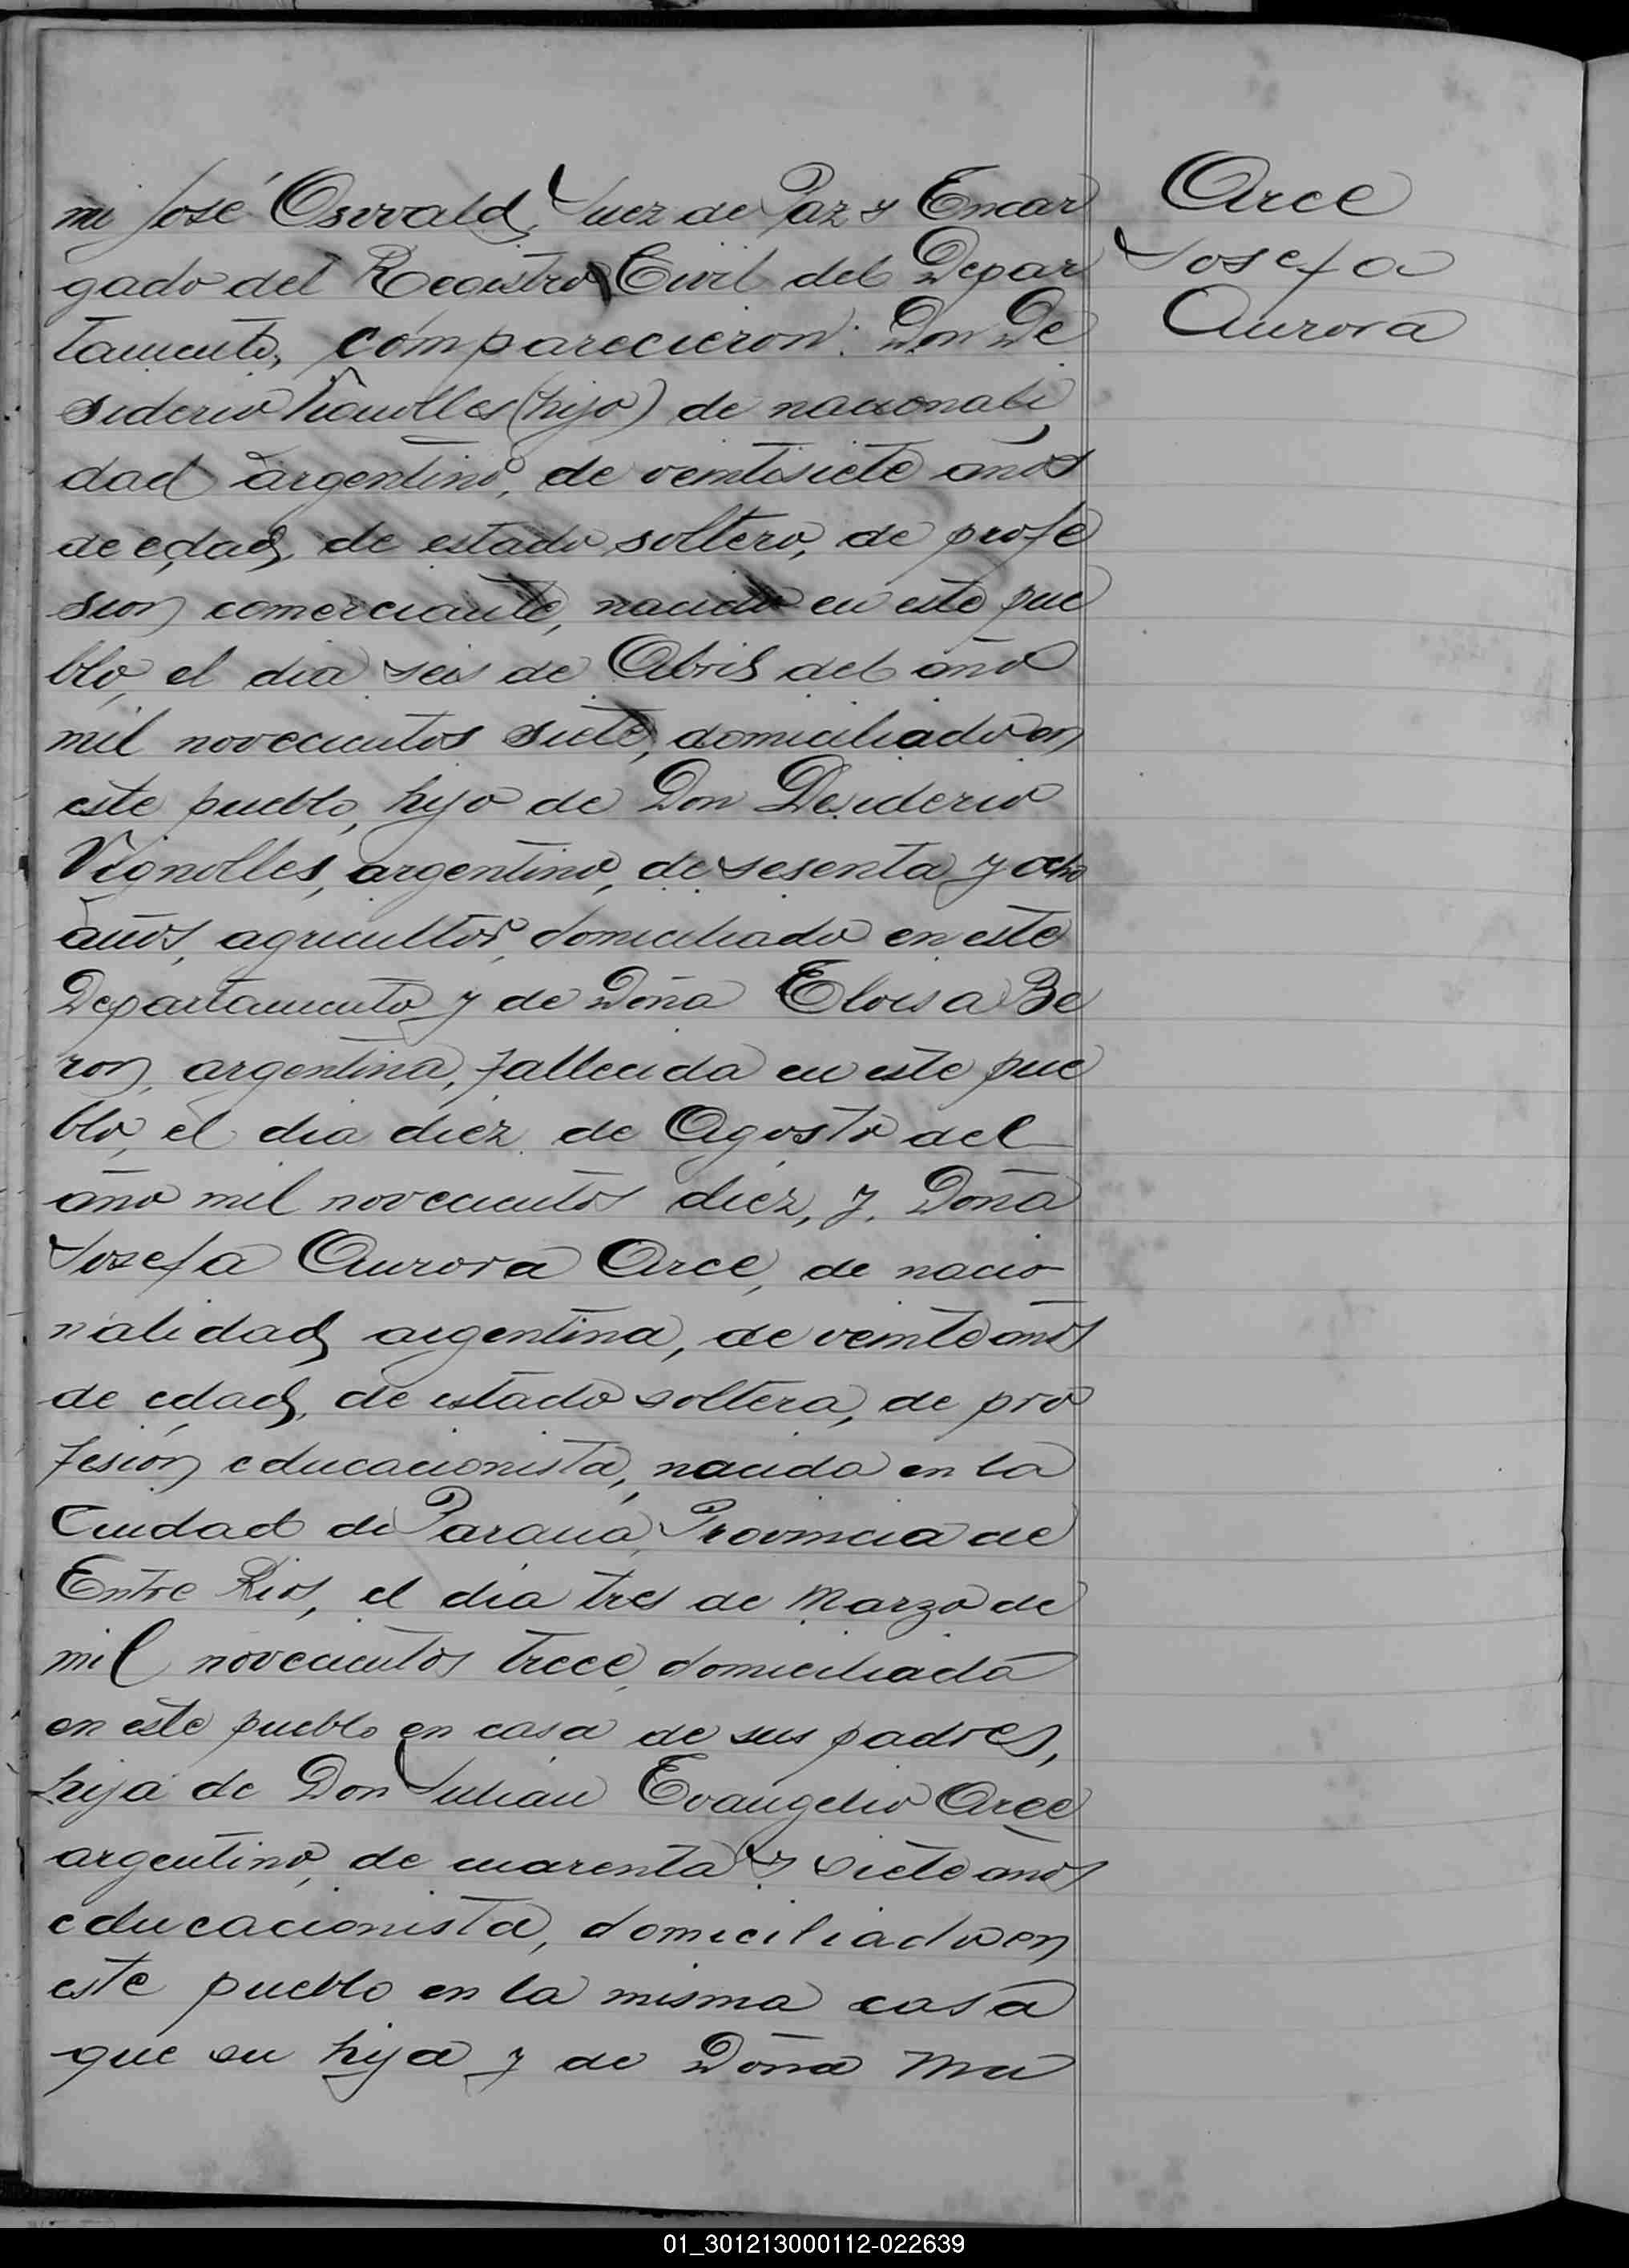 mi José Oswald, Juez de Paz y Encar
gado del Registro Civil del Depar
tamento, comparecieron: Don De
siderio Vignolles (hijo) de nacionali
dad argentino, de veintisiete años
de edad, de estado soltero, de profe
sion comerciante, nacido en este pue
blo, el dia seis de Abril del año
mil novecientos siete, domiciliado en
este pueblo, hijo de Don Desiderio
Vignolles, argentino, de sesenta y ocho
años, agricultor, domiciliado en este
Departamento y de Doña Eloisa Be
ron, argentina, fallecida en este pue
blo, el dia diez de Agosto del
año mil novecientos diez, y, Doña
Josefa Aurora Arce, de nacio
nalidad argentina, de veinte años
de edad, de estado soltera, de pro
fesión educacionista, nacida en la
Ciudad de Paraná, Provincia de
Entre Rios, el dia tres de Marzo de
mil novecientos trece, domiciliada
en este pueblo en casa de sus padres,
hija de Don Julián Evangelio Arce
argentino, de cuarenta y siete años
educacionista, domiciliado en
este pueblo en la misma casa
que su hija y de Doña Ma
Arce
Josefa
Aurora
01_301213000112-022639